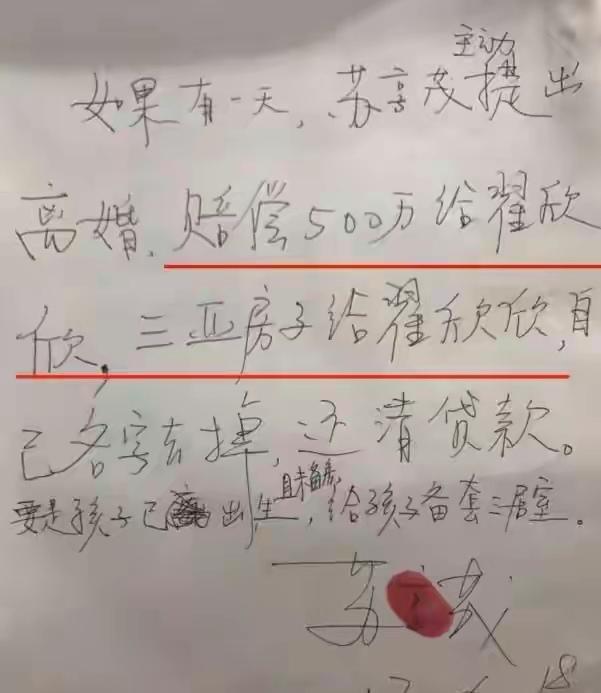 主动
如果有一天,苏享茂提出
离婚,赔偿500万给翟欣
欣,三亚房子给翟欣欣,自
己名字去掉,还清贷款。
且未备房
要是孩子已出生,给孩子备套三居室。
苏茂
18